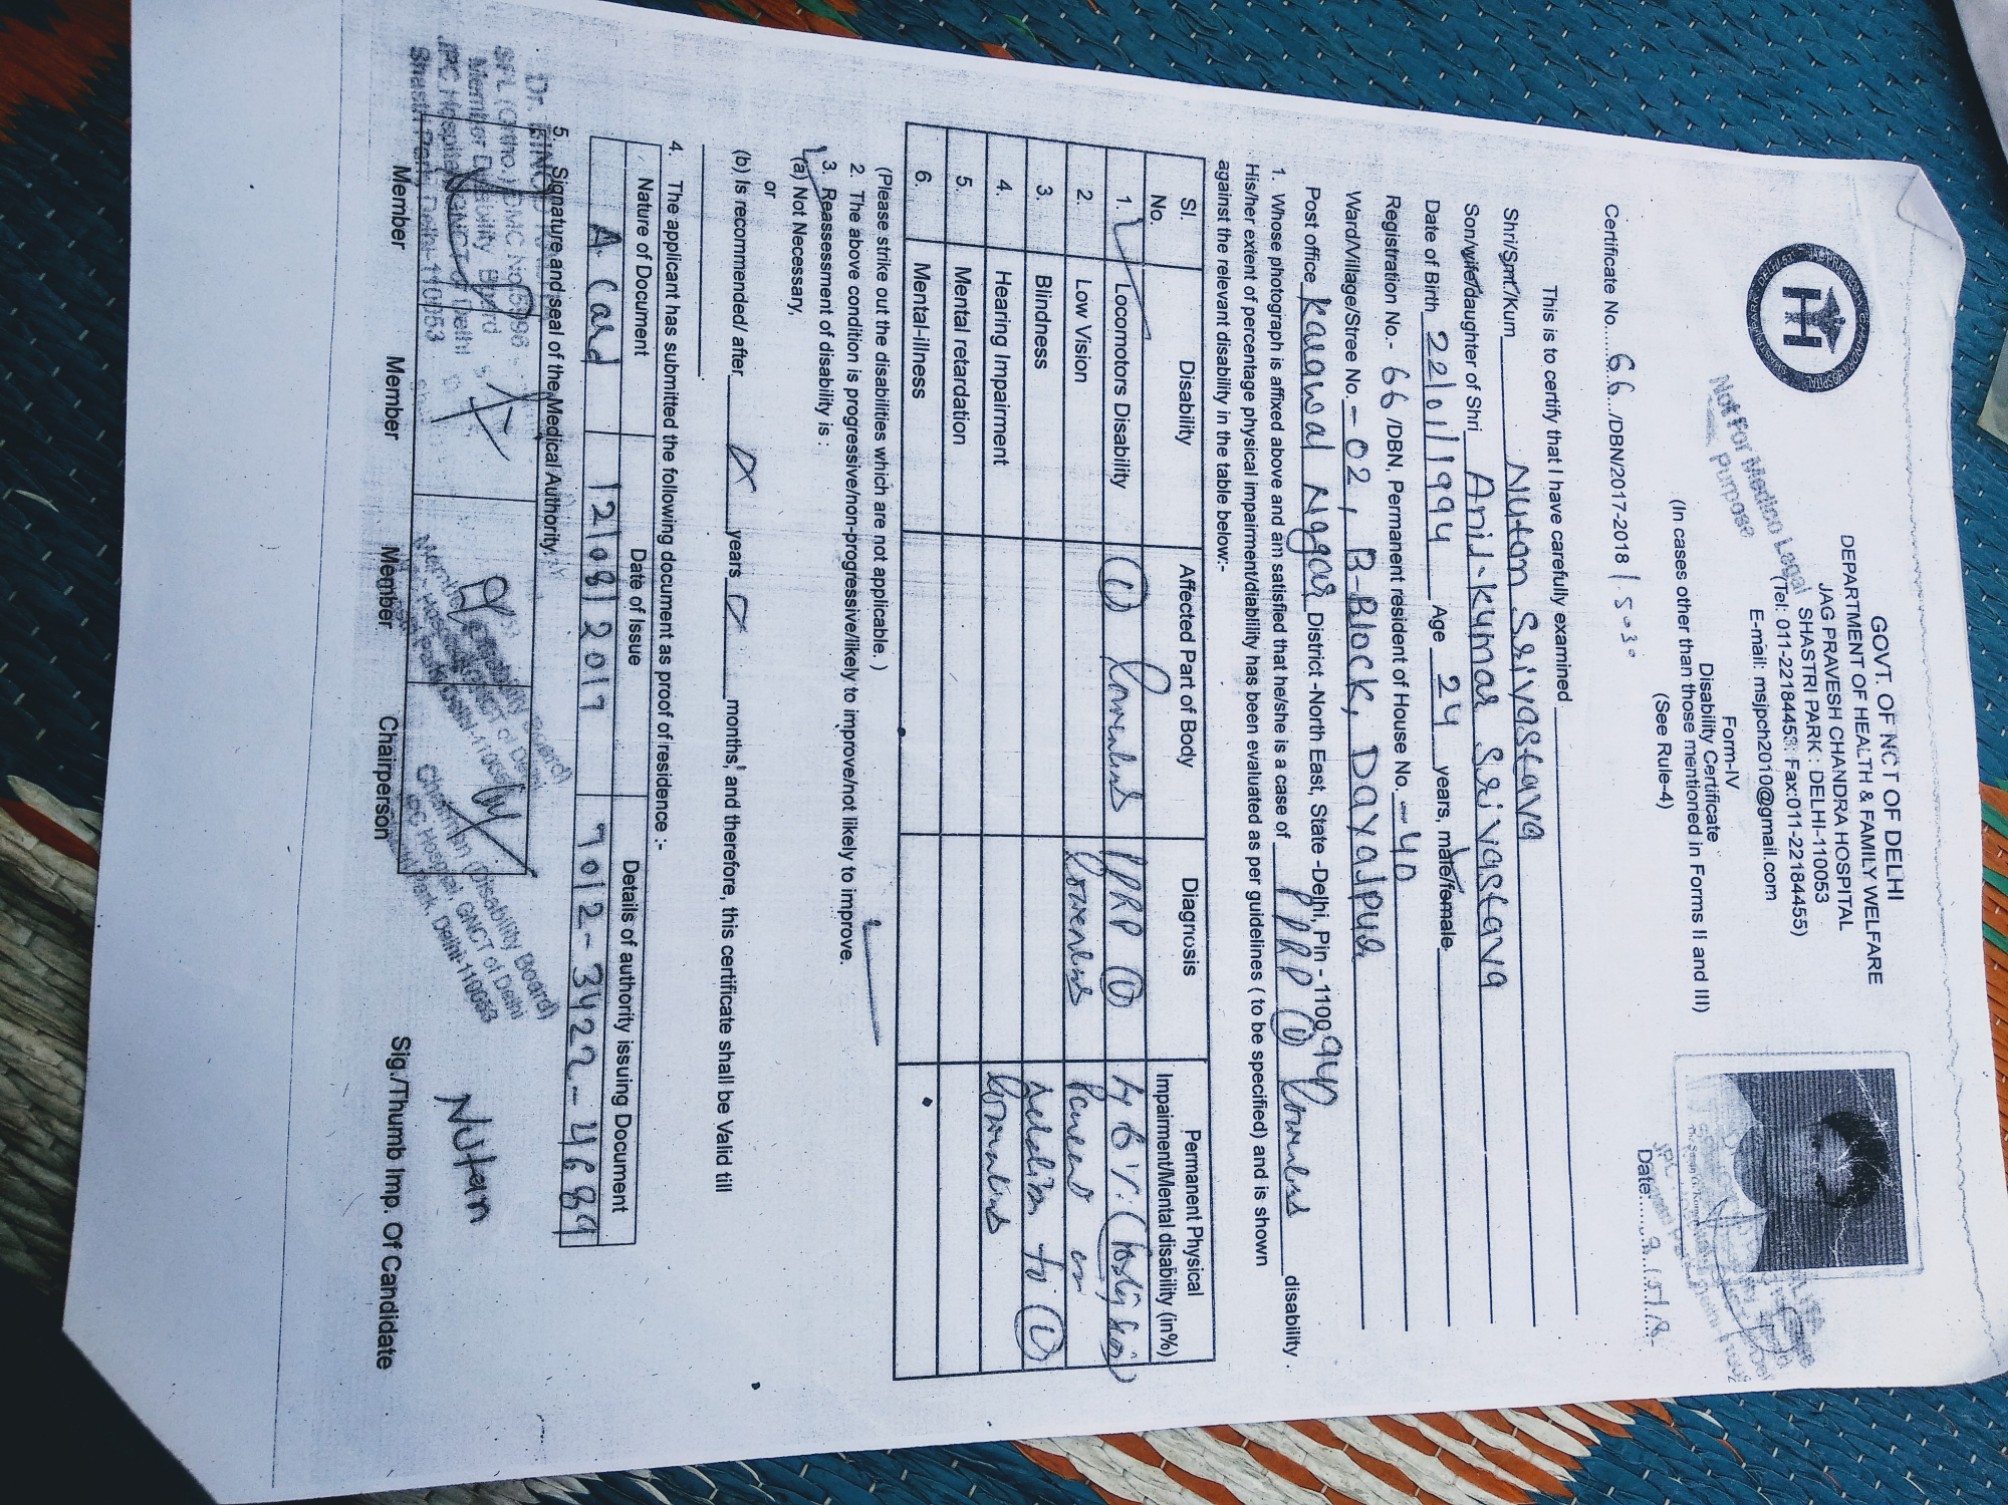 GOVT. OF NCT OF DELHI
DEPARTMENT OF HEALTH & FAMILY WELFARE
JAG PRAVESH CHANDRA HOSPITAL
SHASTRI PARK : DELHI-110053
(Tel: 011-22184453 Fax:011-22184455)
E-mail: msjpch2010@gmail.com
Not For Medico Legal
Purpose
Form-IV
Disability Certificate
(In cases other than those mentioned in Forms II and III)
(See Rule-4)
Certificate No......66.../DBN/2017-2018
Date:
This is to certify that I have carefully examined
Shri/Smt./Kum Nutan Srivastava
Son/wife/daughter of Shri Anil-kumar Srivastava
Date of Birth 22/01/1994 Age 24 years, male/female
Registration No.- 66 /DBN, Permanent resident of House No. - 40
Ward/Village/Stree No. - 02, B-Block, Dayalpur
Post office Karawal Nagar District -North East, State -Delhi, Pin - 110094
1. Whose photograph is affixed above and am satisfied that he/she is a case of PPRP disability.
His/her extent of percentage physical impairment/diability has been evaluated as per guidelines ( to be specified) and is shown
against the relevant disability in the table below:-
Sl. No. Disability Affected Part of Body Diagnosis Permanent Physical Impairment/Mental disability (in%)
1. Locomotors Disability PPRP
2. Low Vision
3. Blindness
4. Hearing Impairment
5. Mental retardation
6. Mental-illness
(Please strike out the disabilities which are not applicable. )
2. The above condition is progressive/non-progressive/likely to improve/not likely to improve.
3. Reassessment of disability is :
(a) Not Necessary,
or
(b) Is recommended/ after years months, and therefore, this certificate shall be Valid till
4. The applicant has submitted the following document as proof of residence :-
Nature of Document Date of Issue Details of authority issuing Document
A Card 12/08/2017 9012-3422-4689
5. Signature and seal of the Medical Authority.
Member Member Member Chairperson
Chairman (Disability Board)
JPC Hospital, GNCT of Delhi
Delhi-110053
Nutan
Sig./Thumb Imp. Of Candidate